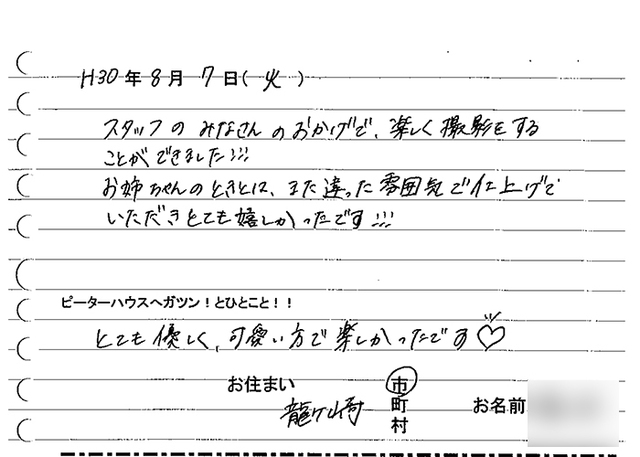 H30年8月7日(火)
スタッフのみなさんのおかげで、楽しく撮影をする
ことができました!!!
お姉ちゃんのときとは、また違った雰囲気で仕上げで
いただきとても嬉しかったです!!!
ピーターハウスへガツン！とひとこと！！
とても優しく、可愛い方で楽しかったです♡
お住まい 龍ケ崎 市 町 村 お名前